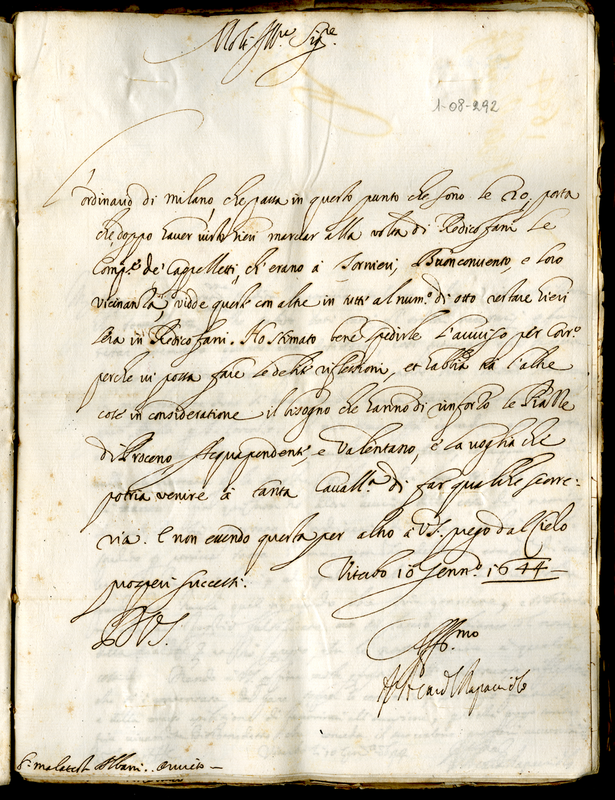 Molt Ill.re Sig.re
1-08-292
L'ordinario di Milano, che passa in questo punto che sono le 20, porta
che doppo haver visto hieri marciar alla volta di Redicofani Le
Comp.e de' Cappelletti, ch'erano à Tornieri, Buonconvento, e loro
vicinanza, vidde queste con altre in tutti al num.o di otto restare hieri
sera in Redicofani. Ho stimato bene spedirle l'avviso per Cor.o
perche vi possa fare le debite riflessioni, et habbia trà l'altre
cose in consideratione il bisogno che hanno di rinforzo le Piazze
di Proceno, Acquapendente, e Valentano, e la voglia che
potria venire à tanta Cavall.a di far qualche scorre-
ria. E non essendo questa per altro à V.S. prego dal Cielo
prosperi successi. Viterbo 10 Genn.o 1644
D V.S.
Aff.mo
Il Card. Rapaccioli
S. Malatesta Albani. Orvieto